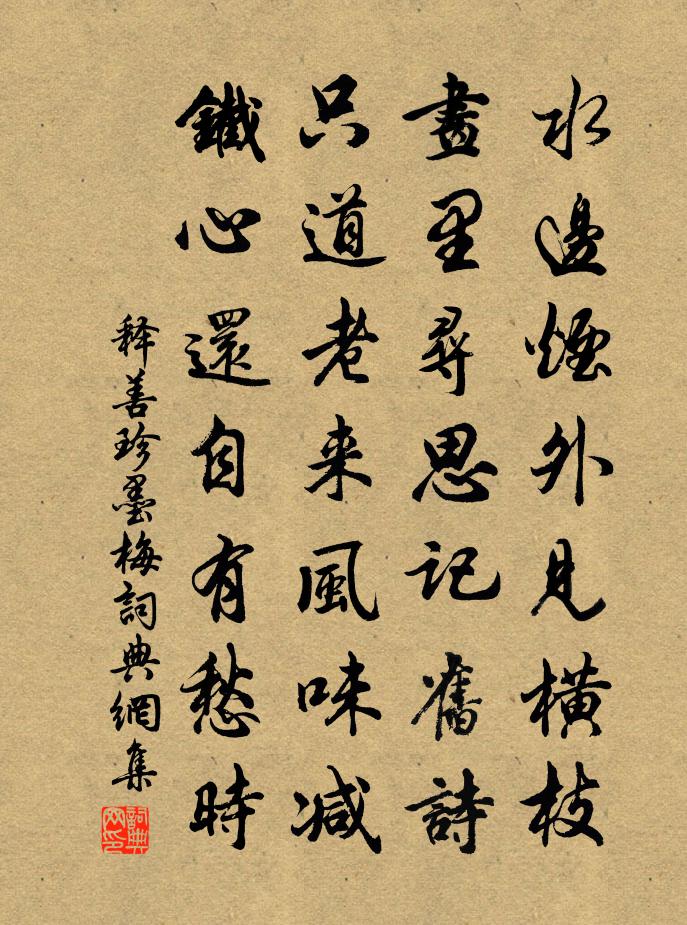 水邊煙外見橫枝
畫里尋思記舊詩
只道老来風味减
鐵心還自有愁時
释善珍墨梅詞典網集
詞典
网印